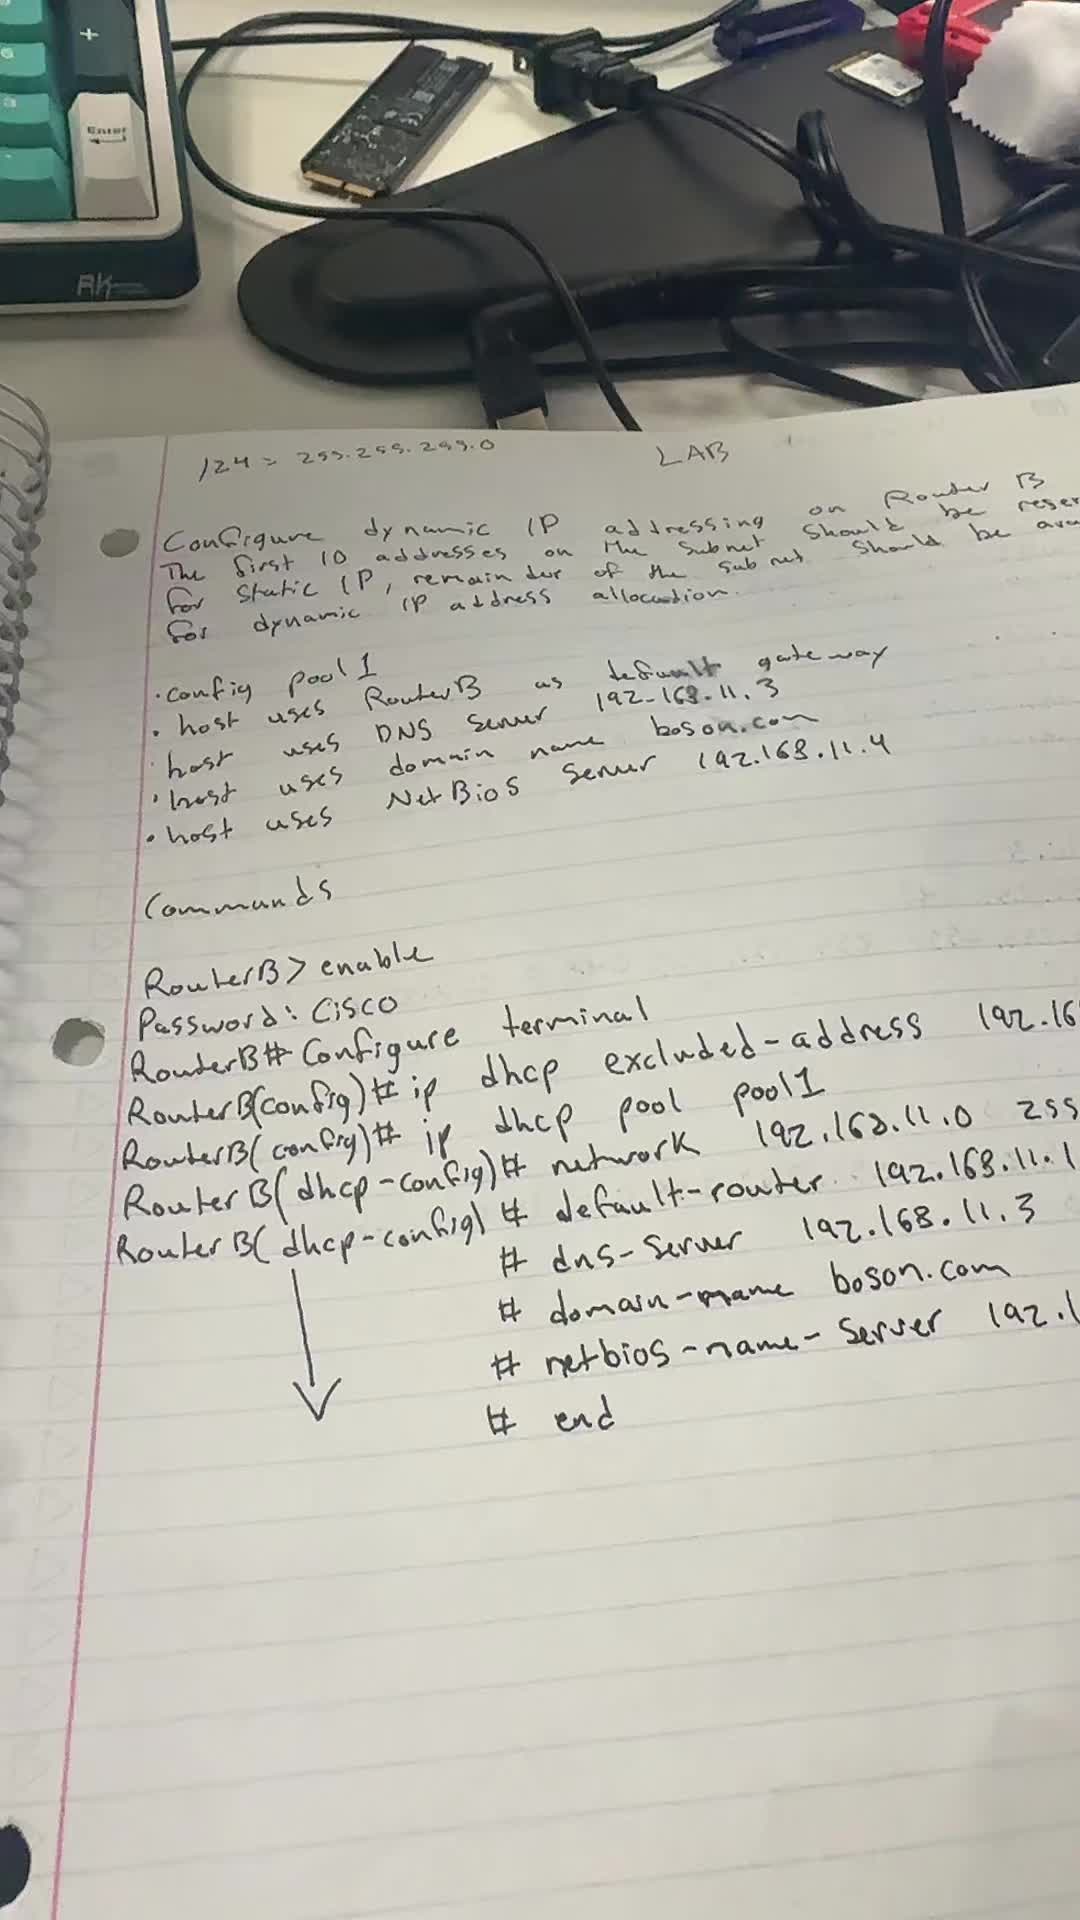 +
Enter
RK
/24 = 255.255.255.0 LAB
Configure dynamic IP addressing on Router B
The first 10 addresses on the subnet should be reser
for static IP, remainder of the subnet should be ava
for dynamic IP address allocation.
• config pool1
• host uses RouterB as default gateway
• host uses DNS server 192.168.11.3
• host uses domain name boson.com
• host uses NetBios server 192.168.11.4
Commands
RouterB> enable
Password: Cisco
RouterB# Configure terminal
RouterB(config)# ip dhcp excluded-address 192.16
RouterB(config)# ip dhcp pool pool1
RouterB(dhcp-config)# network 192.168.11.0 255
RouterB(dhcp-config)# default-router 192.168.11.1
# dns-server 192.168.11.3
# domain-name boson.com
# netbios-name-server 192.1
# end